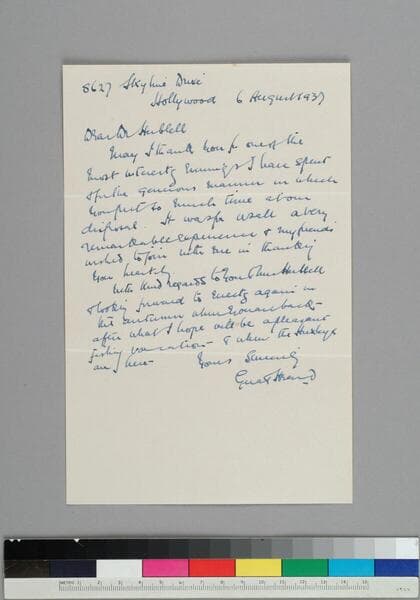 8627 Skyline Drive
Hollywood 6 August 1937
Dear Dr Hubbell
May I thank you for one of the
most interesting evenings I have spent
& for the generous manner in which
you put so much time at our
disposal. It was for us all a very
remarkable experience & my friends
wished to join with me in thanking
you heartily
With kind regards to you & Mrs Hubbell
& looking forward to meeting again in
the autumn when you are back
after what I hope will be a pleasant
fishing vacation & when the Huxleys
are here
Yours Sincerely
Gerald Heard